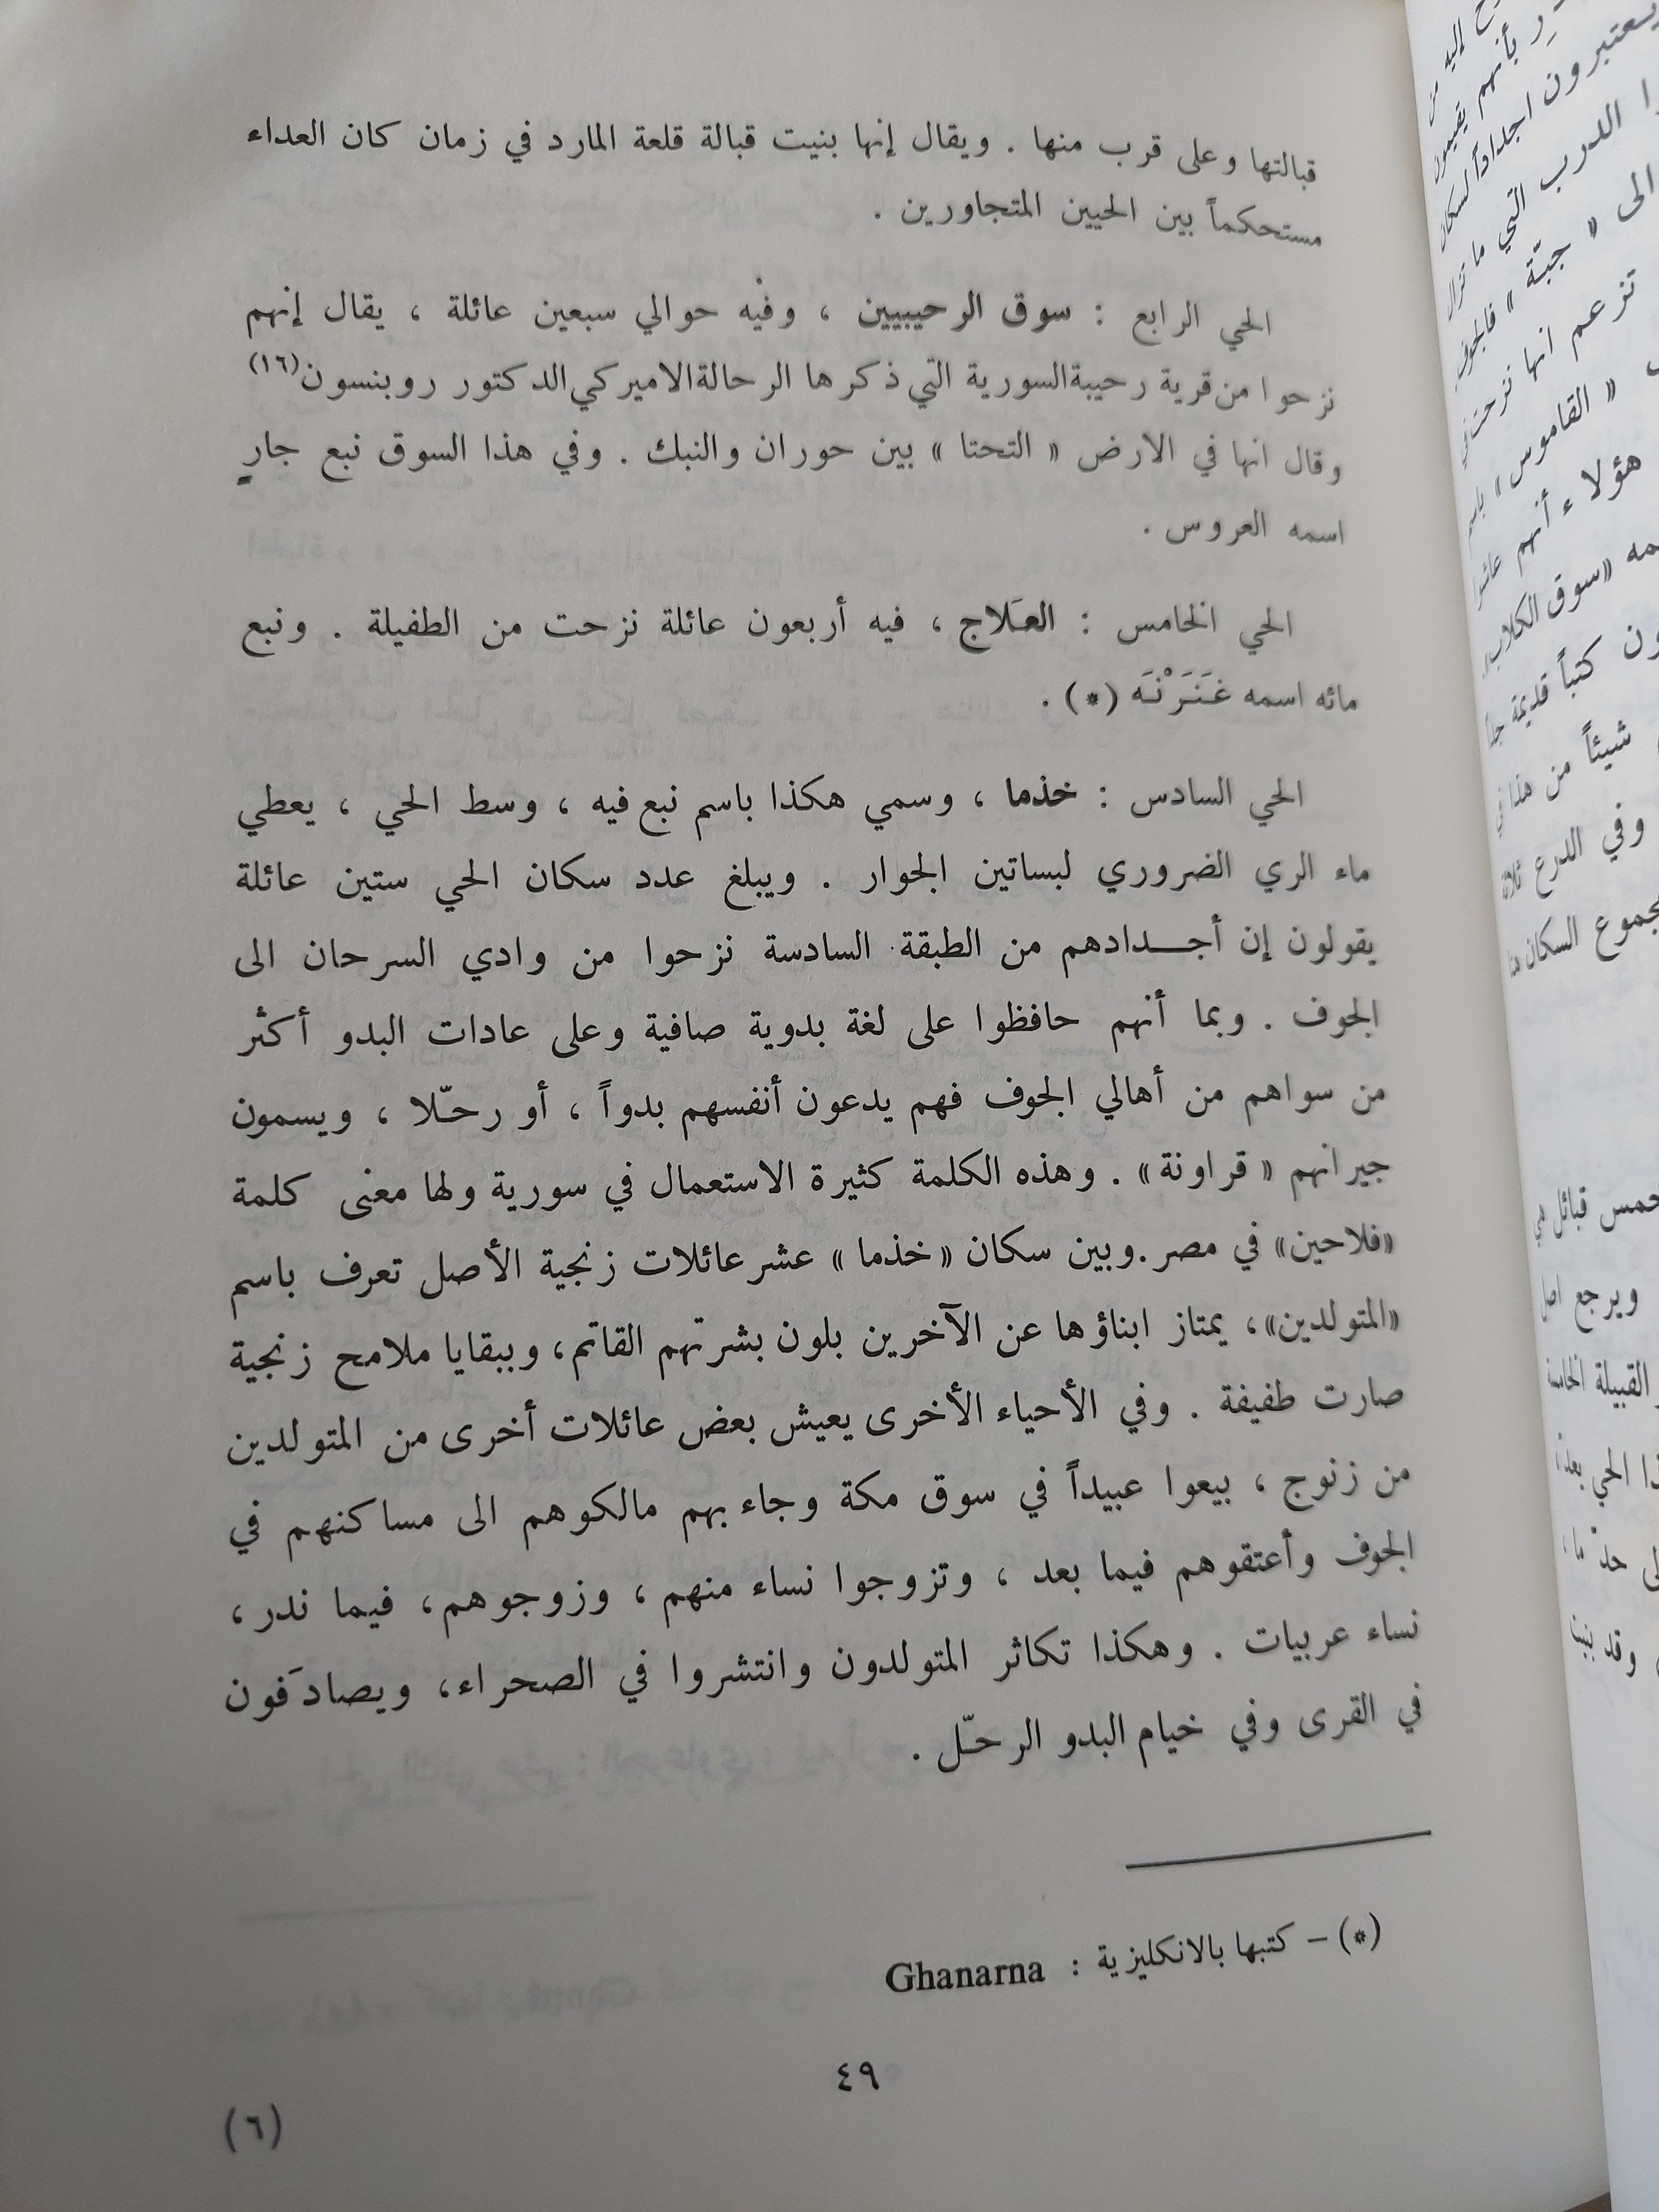 قبالتها وعلى قرب منها . ويقال إنها بنيت قبالة قلعة المارد في زمان كان العداء
مستحكماً بين الحيين المتجاورين .
الحي الرابع : سوق الرحيبيين ، وفيه حوالي سبعين عائلة ، يقال إنهم
نزحوا من قرية رحيبة السورية التي ذكرها الرحالة الاميركي الدكتور روبنسون (١٦)
وقال انها في الارض « التحتا » بين حوران والنبك . وفي هذا السوق نبع جارٍ
اسمه العروس .
الحي الخامس : العَلاج ، فيه أربعون عائلة نزحت من الطفيلة . ونبع
مائه اسمه غَنَرْنَه (*) .
الحي السادس : خذما ، وسمي هكذا باسم نبع فيه ، وسط الحي ، يعطي
ماء الري الضروري لبساتين الجوار . ويبلغ عدد سكان الحي ستين عائلة
يقولون إن أجـــدادهم من الطبقة السادسة نزحوا من وادي السرحان الى
الجوف . وبما أنهم حافظوا على لغة بدوية صافية وعلى عادات البدو أكثر
من سواهم من أهالي الجوف فهم يدعون أنفسهم بدواً ، أو رحّلا ، ويسمون
جيرانهم « قراونة » . وهذه الكلمة كثيرة الاستعمال في سورية ولها معنى كلمة
«فلاحين» في مصر . وبين سكان « خذما » عشر عائلات زنجية الأصل تعرف باسم
«المتولدين» ، يمتاز ابناؤها عن الآخرين بلون بشرتهم القاتم ، وببقايا ملامح زنجية
صارت طفيفة . وفي الأحياء الأخرى يعيش بعض عائلات أخرى من المتولدين
من زنوج ، بيعوا عبيداً في سوق مكة وجاء بهم مالكوهم الى مساكنهم في
الجوف وأعتقوهم فيما بعد ، وتزوجوا نساء منهم ، وزوجوهم ، فيما ندر ،
نساء عربيات . وهكذا تكاثر المتولدون وانتشروا في الصحراء ، ويصادَفون
في القرى وفي خيام البدو الرحّل .
(*) – كتبها بالانكليزية : Ghanarna
٤٩
(٦)
إليه من
بأنهم يقيمون
يعتبرون اجداداً لسكان
الدرب التي ما تزال
الى « جبّة » فالجوف
تزعم انها نزحت
« القاموس » باسم
هؤلاء أنهم عاشوا
«سوق الكلاب»
كتباً قديمة جداً
شيئاً من هذا في
وفي الدرع ثلاثة
مجموع السكان هنا
خمس قبائل هي
ويرجع اصل
القبيلة الخامسة
الحي بعدة
حد ما ،
وقد بنيت